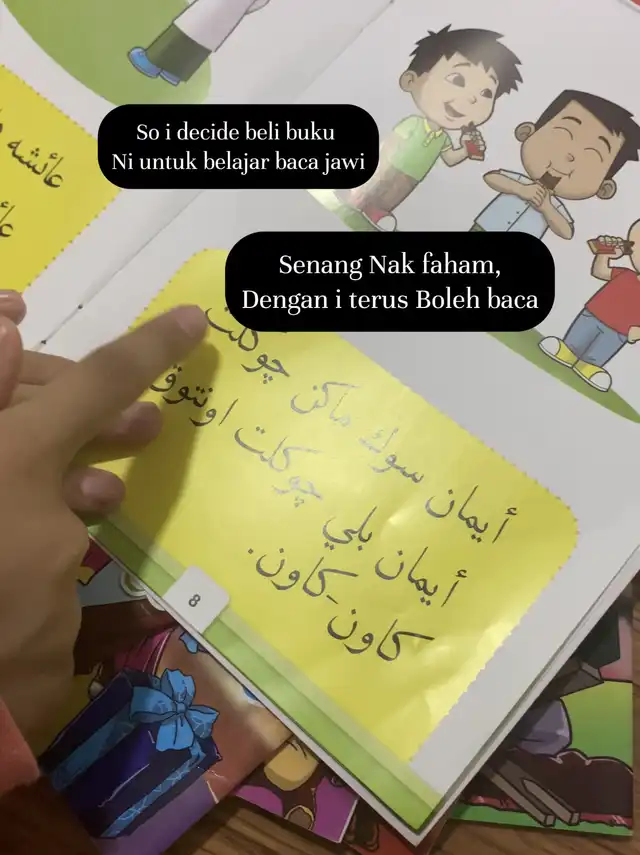 So i decide beli buku
Ni untuk belajar baca jawi
Senang Nak faham,
Dengan i terus Boleh baca
عائشه
أيمان سوك ماكن چوكلت
أيمان بلي چوكلت اونتوق
كاون-كاون.
8